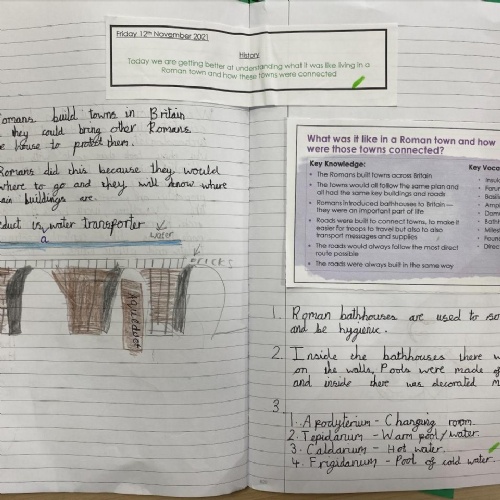 Friday 12th November 2021
History
Today we are getting better at understanding what it was like living in a
Roman town and how these towns were connected
omans build towns in Britain
they could bring other Romans
e house to protect them.
Romans did this because they would
where to go and they will know where
ain buildings are.
duct is water transporter
a
water
BRICKS
Aqueduct
What was it like in a Roman town and how
were those towns connected?
Key Knowledge:
Key Voca
• The Romans built towns across Britain
• The towns would all follow the same plan and
all had the same key buildings and roads
• Romans introduced bathhouses to Britain —
they were an important part of life
• Roads were built to connect towns, to make it
easier for troops to travel but also to
transport messages and supplies
• The roads would always follow the most direct
route possible
• The roads were always built in the same way
• Insul
• Foru
• Basili
• Amp
• Dom
• Bath
• Miles
• Foun
• Direc
1. Roman bathhouses are used to so
and be hygienic.
2. Inside the bathhouses there w
on the walls, Pools were made of
and inside there was decorated m
3.
1. Apodyterium - Changing room.
2. Tepidarium - Warm pool/water.
3. Caldarium - Hot water.
4. Frigidarium - Pool of cold water.